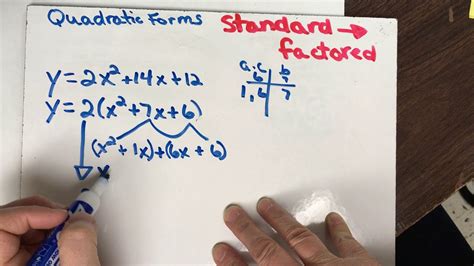 Quadratic Forms
Standard →
factored
y=2x²+14x+12
y=2(x²+7x+6)
(x²+1x)+(6x+6)
x
a·c b
6 7
1,6 7